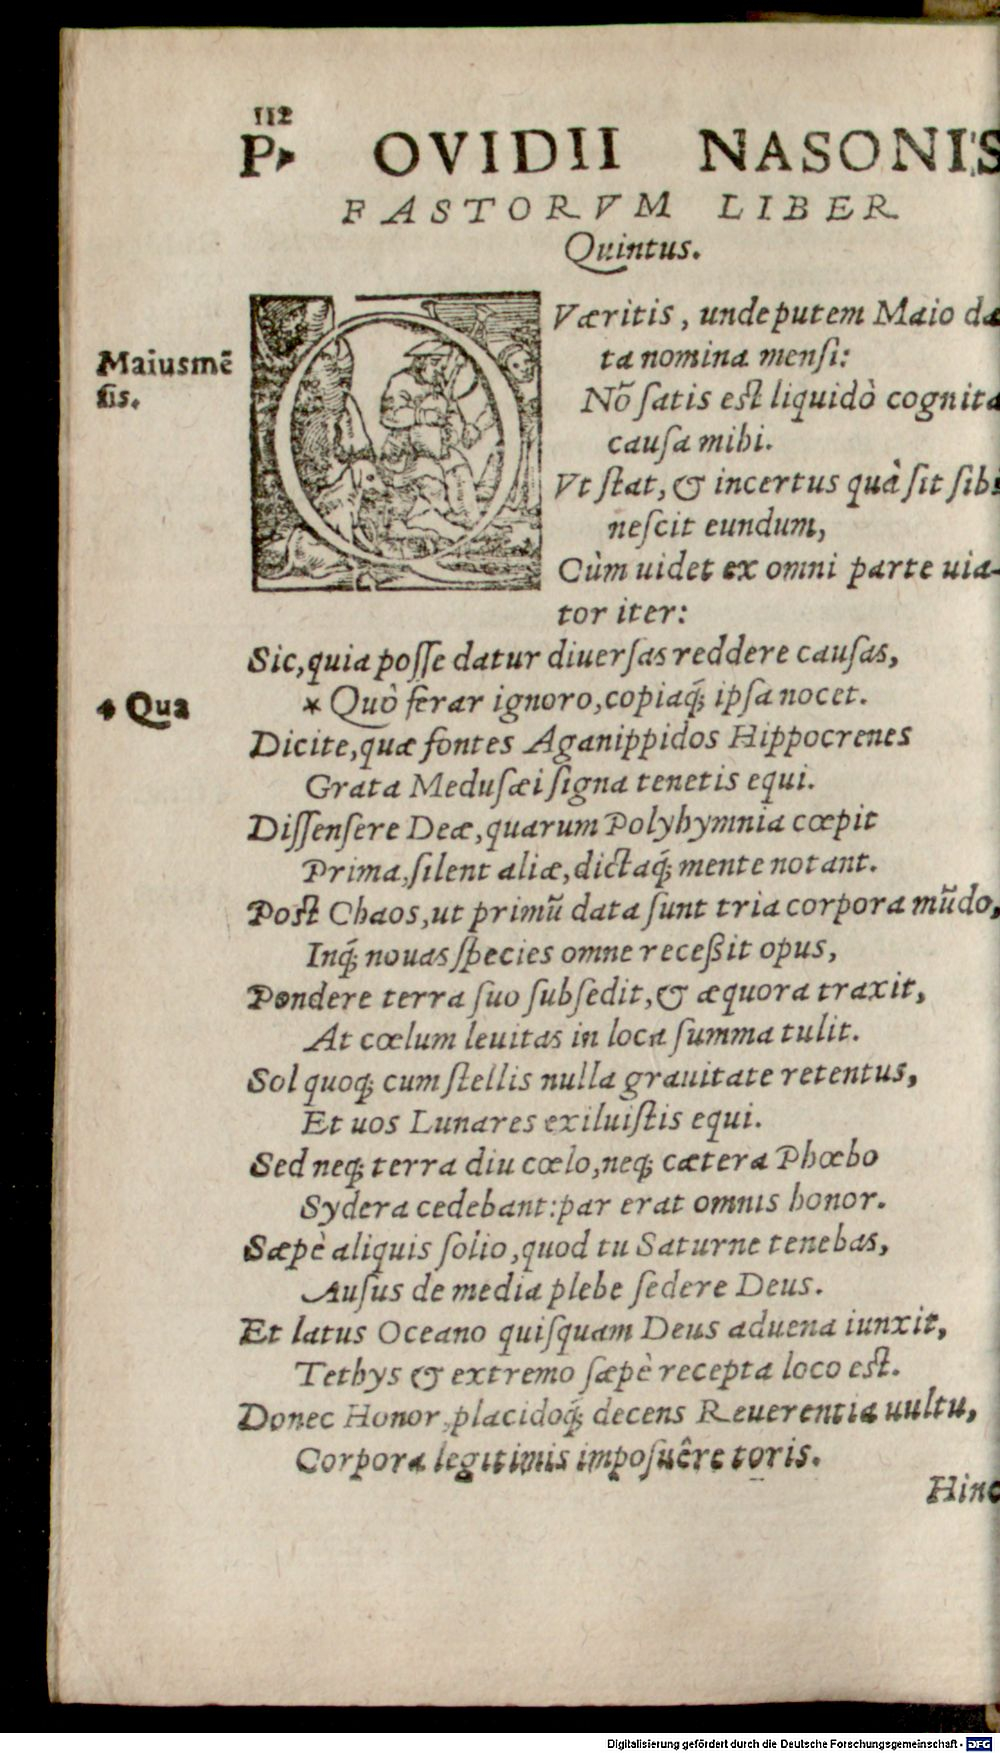 112
P. OVIDII NASONIS
FASTORVM LIBER
Quintus.
Maiusmẽ
sis.
QVæritis, unde putem Maio da
ta nomina mensi:
Nõ satis est liquidò cognita
causa mihi.
Vt stat, & incertus quà sit sibi
nescit eundum,
Cùm uidet ex omni parte uia-
tor iter:
Sic, quia posse datur diuersas reddere causas,
* Quò ferar ignoro, copiaq́; ipsa nocet.
* Qua
Dicite, quæ fontes Aganippidos Hippocrenes
Grata Medusæi signa tenetis equi.
Dissensere Deæ, quarum Polyhymnia cœpit
Prima, silent aliæ, dictaq́; mente notant.
Post Chaos, ut primũ data sunt tria corpora mũdo,
Inq́; nouas species omne receßit opus,
Pondere terra suo subsedit, & æquora traxit,
At cœlum leuitas in loca summa tulit.
Sol quoq; cum stellis nulla grauitate retentus,
Et uos Lunares exiluistis equi.
Sed neq; terra diu cœlo, neq; cætera Phœbo
Sydera cedebant: par erat omnis honor.
Sæpè aliquis solio, quod tu Saturne tenebas,
Ausus de media plebe sedere Deus.
Et latus Oceano quisquam Deus aduena iunxit,
Tethys & extremo sæpè recepta loco est.
Donec Honor, placidoq́; decens Reuerentia uultu,
Corpora legitimis imposuêre toris.
Hinc
Digitalisierung gefördert durch die Deutsche Forschungsgemeinschaft - DFG